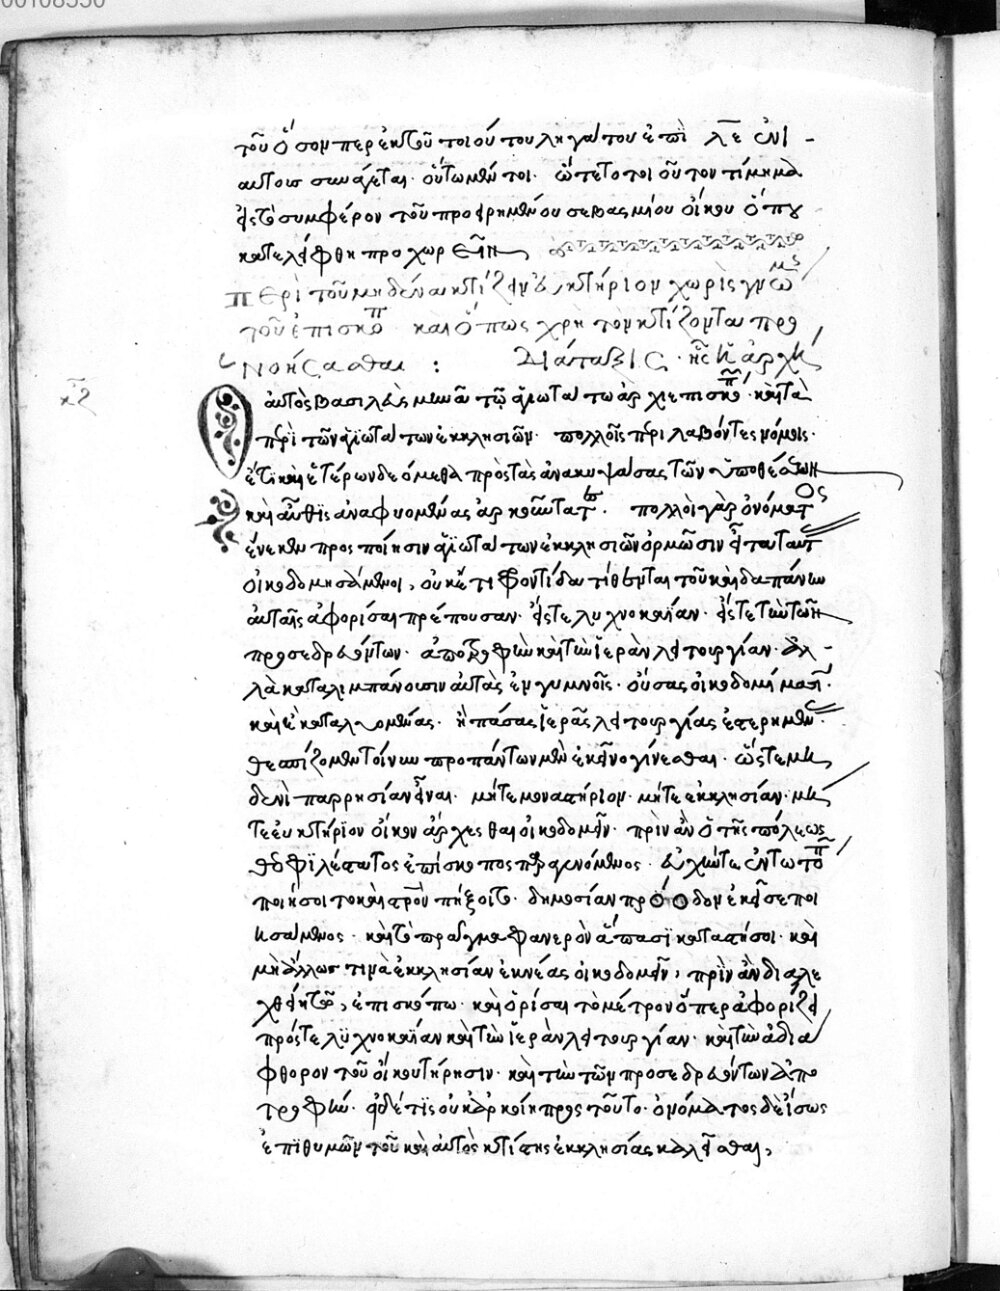 00108550
τοῦ ὅσον περ ἐκ τοῦ τοιούτου ληγάτου ἐπὶ λε ἐνι-
αυτοῖς συνάγεται. οὕτω μέντοι. ὥστε τὸ τοιοῦτον τίμημα
εἰς τὸ συμφέρον τοῦ προειρημένου σεβασμίου οἴκου ὅπου
κατελείφθη προχωρεῖν
περὶ τοῦ μηδένα κτίζειν εὐκτήριον χωρὶς γνώμης
τοῦ ἐπισκόπ καὶ ὅπως χρὴ τὸν κτίζοντα προ
νοήσασθαι : διάταξις. ἧς ἡ ἀρχή
κζ
Ὁ αὐτὸς βασιλεὺς μηνᾶ τῷ ἁγιωτάτω ἀρχιεπισκό. καὶ τὰ
περὶ τῶν ἁγιωτάτων ἐκκλησιῶν. πολλοῖς περιλαβόντες νόμοις.
ἔτι καὶ ἑτέρων δεόμεθα πρὸς τὰς ἀνακυψάσας τῶν ὑποθέσεων
καὶ αὖθις ἀναφυομένας ἀρκούντατ. πολλοὶ γὰρ ὀνόματος
ἕνεκεν προσποίησιν ἁγιωτάτων ἐκκλησιῶν ὁρμῶσιν εἶτα ταύτ
οἰκοδομησάμενοι, οὐκέτι φροντίδα τίθενται τοῦ καὶ δαπάνην
αὐταῖς ἀφορίσαι πρέπουσαν. εἴς τε λυχνοκαΐαν. εἴς τε τὴν τῶν
προσεδρευόντων. ἀποτροφὴν καὶ τὴν ἱερὰν λειτουργίαν. ἀλ-
λὰ καταλιμπάνουσιν αὐτὰς ἐν γυμνοῖς. οὔσας οἰκοδομήμασι.
καὶ ἢ καταλυομένας. ἢ πάσας ἱερᾶς λειτουργίας ἐστερημέν.
θεσπίζομεν τοίνυν προπάντων μὲν ἐκεῖνο γίνεσθαι. ὥστε μη
δενὶ παρρησίαν εἶναι. μήτε μοναστήριον. μήτε ἐκκλησίαν. μή
τε εὐκτήριον οἶκον ἄρχεσθαι οἰκοδομεῖν. πρὶν ἂν ὁ τῆς πόλεως
θεοφιλέστατος ἐπίσκοπος παραγενόμενος. εὐχήν τε ἐν τῷ τόπ
ποιήσοιτο καὶ σταυρὸν πήξοιτο. δημοσίαν πρόοδον ἐκεῖσε ποι
ησάμενος. καὶ τὸ πρᾶγμα φανερὸν ἅπασι καταστήσοι. καὶ
μὴ ἄλλως τινὰ ἐκκλησίαν ἐκ νέας οἰκοδομεῖν, πρὶν ἂν διαλε
χθείη τῷ, ἐπισκόπω. καὶ ὁρίσαι τὸ μέτρον ὅπερ ἀφορίζει
πρός τε λυχνοκαΐαν καὶ τὴν ἱερὰν λειτουργίαν. καὶ τὴν ἀδιά
φθορον τοῦ οἴκου τήρησιν. καὶ τὴν τῶν προσεδρευόντων ἀπο
τροφήν. εἰ δέ τις οὐκ ἀρκοίη πρὸς τοῦτο. ὀνόματος δὲ ἴσως
ἐπιθυμῶν τοῦ καὶ αὐτὸς κτίστης ἐκκλησίας καλεῖσθαι,